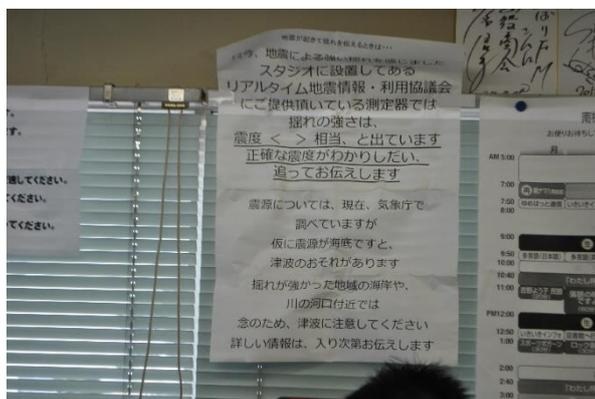 地震が起きて揺れを伝えるときは…
只今、地震による強い揺れを感じました
スタジオに設置してある
リアルタイム地震情報・利用協議会
にご提供頂いている測定器では
揺れの強さは、
震度 < > 相当、と出ています
正確な震度がわかりしだい、
追ってお伝えします
震源については、現在、気象庁で
調べていますが
仮に震源が海底ですと、
津波のおそれがあります
揺れが強かった地域の海岸や、
川の河口付近では
念のため、津波に注意してください
詳しい情報は、入り次第お伝えします
してください。
てください。
てください。
お便りお待ちし
月
AM 5:00
7:00
7:50
8:00
9:00
9:50
10:00
10:40
11:00
PM12:00
12:50
1:00
2:00
2:40
3:00
ゆめはっと通信
多言語(日本語)
いきいきインフォ